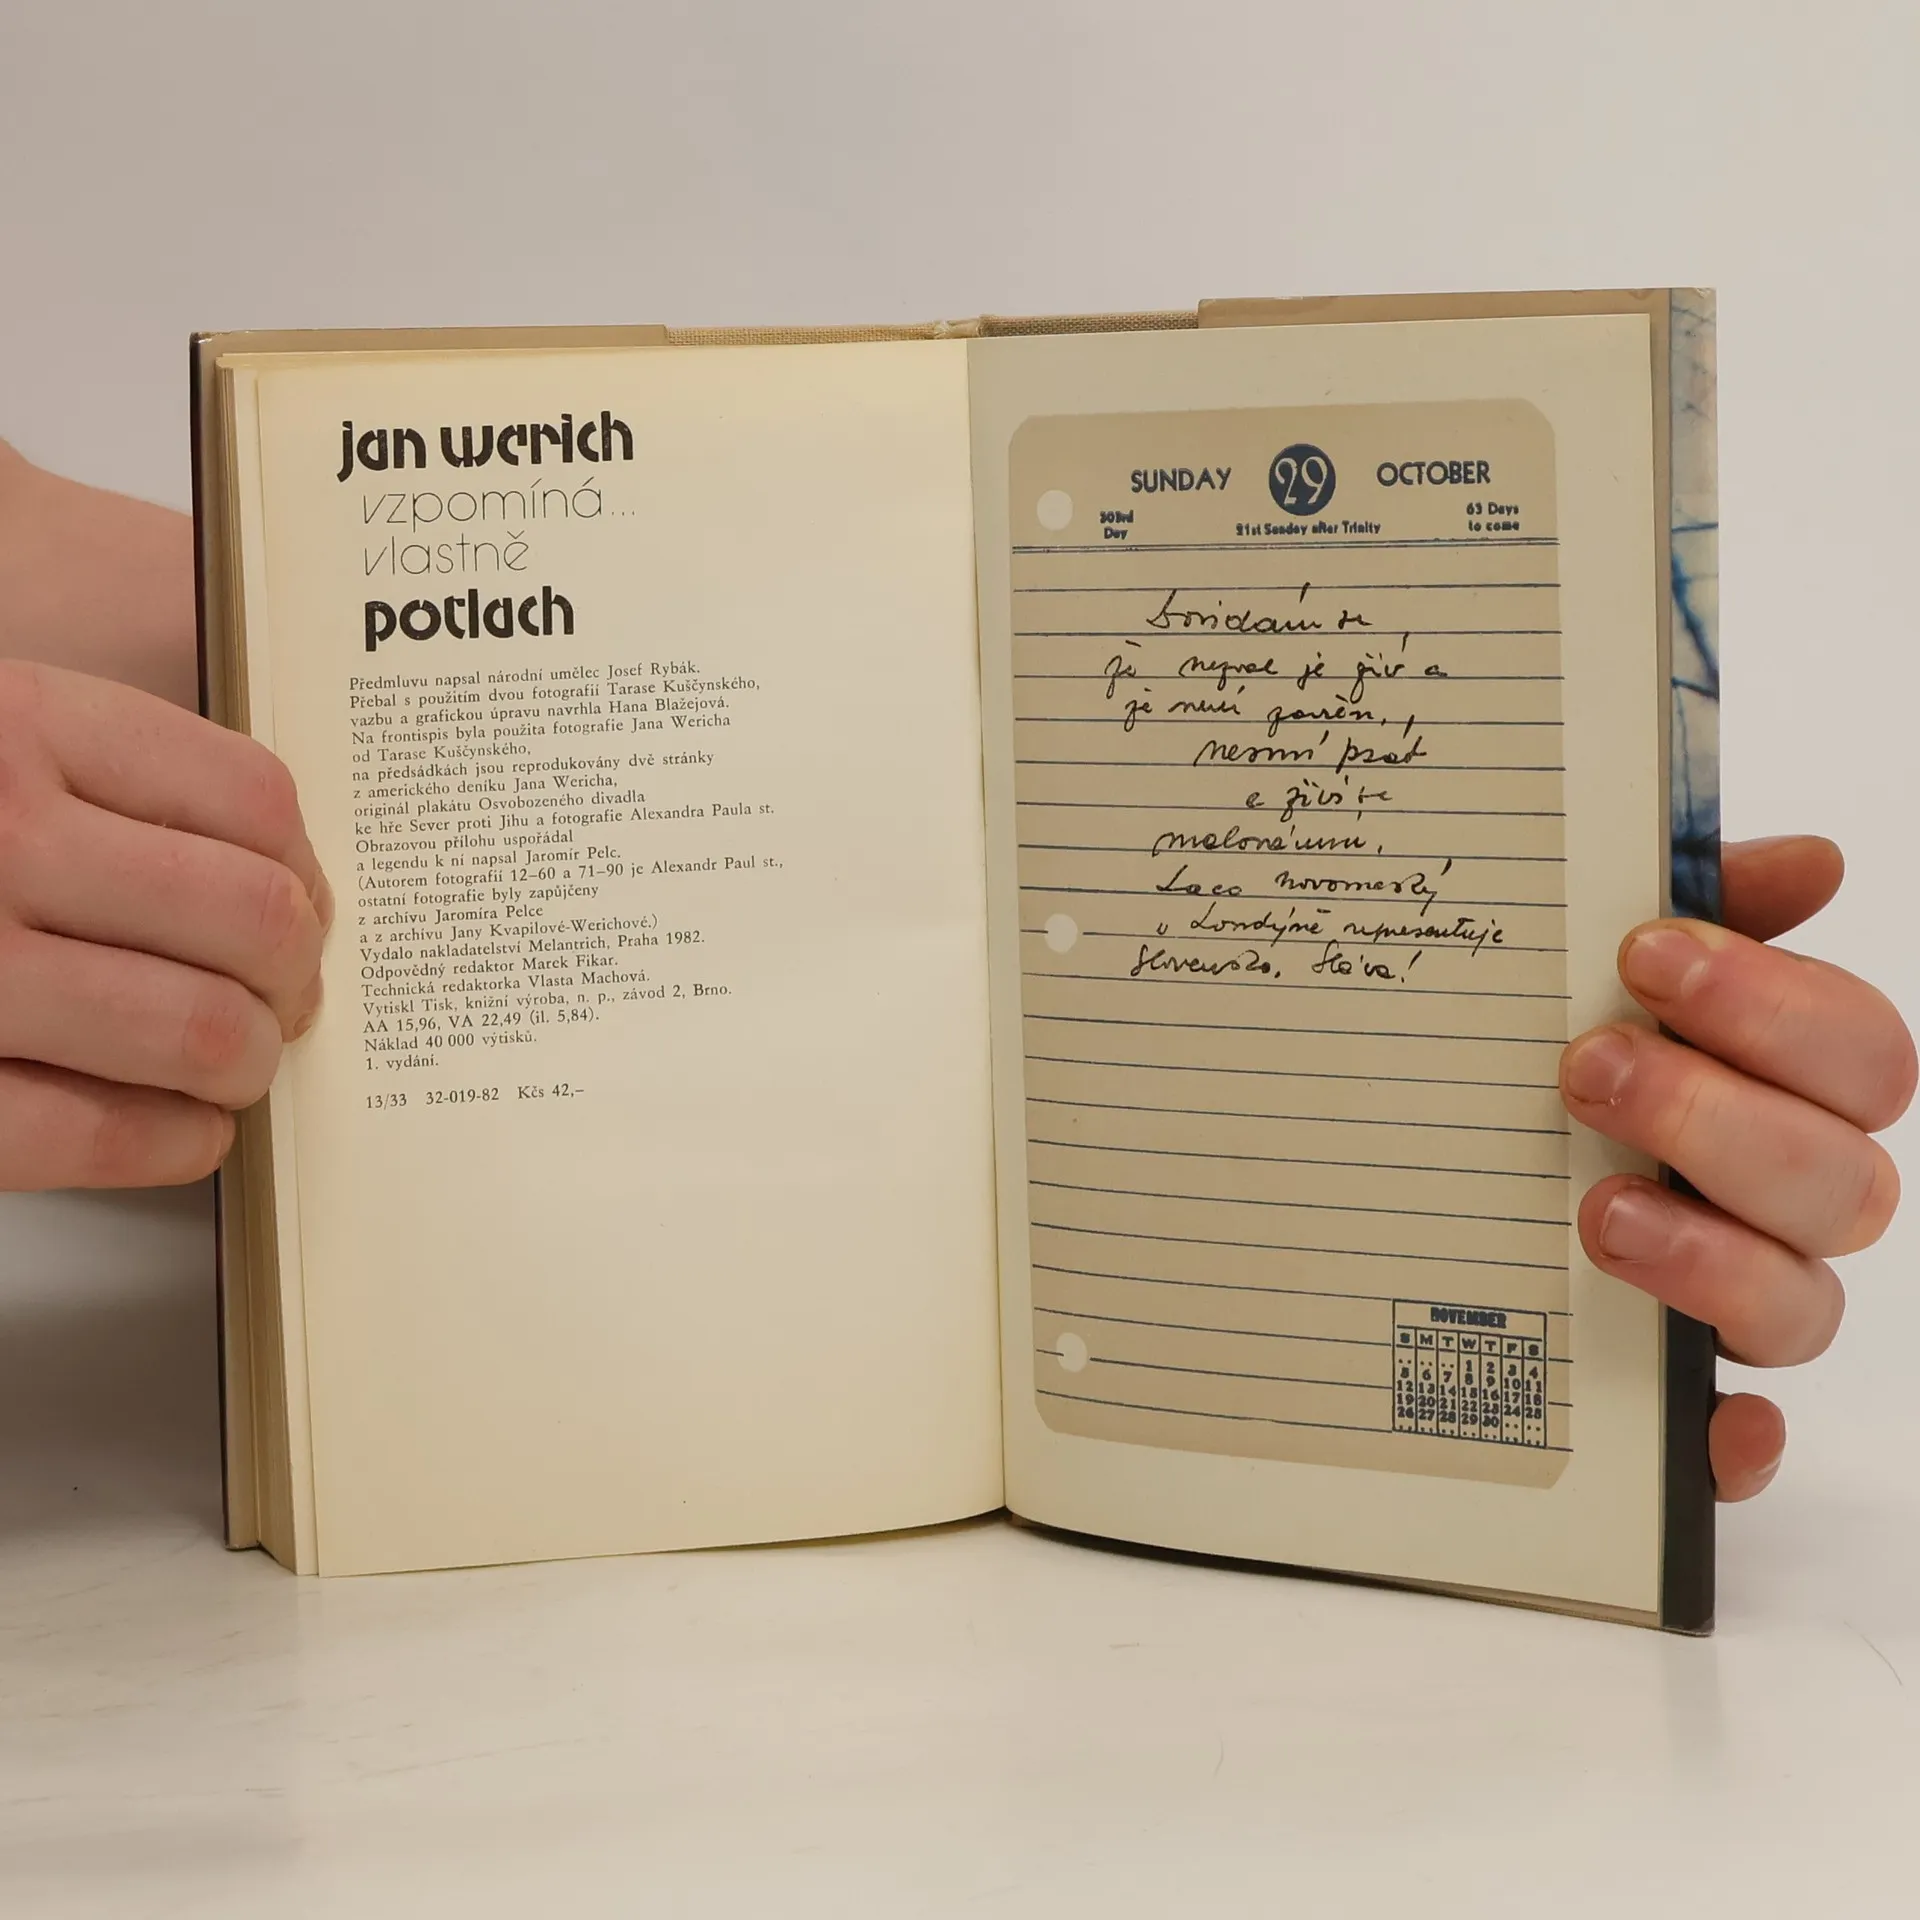 jan werich
vzpomíná...
vlastně
potlach
Předmluvu napsal národní umělec Josef Rybák.
Přebal s použitím dvou fotografií Tarase Kuščynského,
vazbu a grafickou úpravu navrhla Hana Blažejová.
Na frontispis byla použita fotografie Jana Wericha
od Tarase Kuščynského,
na předsádkách jsou reprodukovány dvě stránky
z amerického deníku Jana Wericha,
originál plakátu Osvobozeného divadla
ke hře Sever proti Jihu a fotografie Alexandra Paula st.
Obrazovou přílohu uspořádal
a legendu k ní napsal Jaromír Pelc.
(Autorem fotografií 12–60 a 71–90 je Alexandr Paul st.,
ostatní fotografie byly zapůjčeny
z archívu Jaromíra Pelce
a z archívu Jany Kvapilové-Werichové.)
Vydalo nakladatelství Melantrich, Praha 1982.
Odpovědný redaktor Marek Fikar.
Technická redaktorka Vlasta Machová.
Vytiskl Tisk, knižní výroba, n. p., závod 2, Brno.
AA 15,96, VA 22,49 (il. 5,84).
Náklad 40 000 výtisků.
1. vydání.
13/33 32-019-82 Kčs 42,–
SUNDAY 29 OCTOBER
303rd Day
21st Sunday after Trinity
63 Days to come
Dovídám se
že nezval je živ a
že není zavřen,
nesmí psát
a živí se
Laco novomeský
v Londýně representuje
Slovensko. Sláva!
NOVEMBER
S M T W T F S
.. .. .. 1 2 3 4
5 6 7 8 9 10 11
12 13 14 15 16 17 18
19 20 21 22 23 24 25
26 27 28 29 30 .. ..